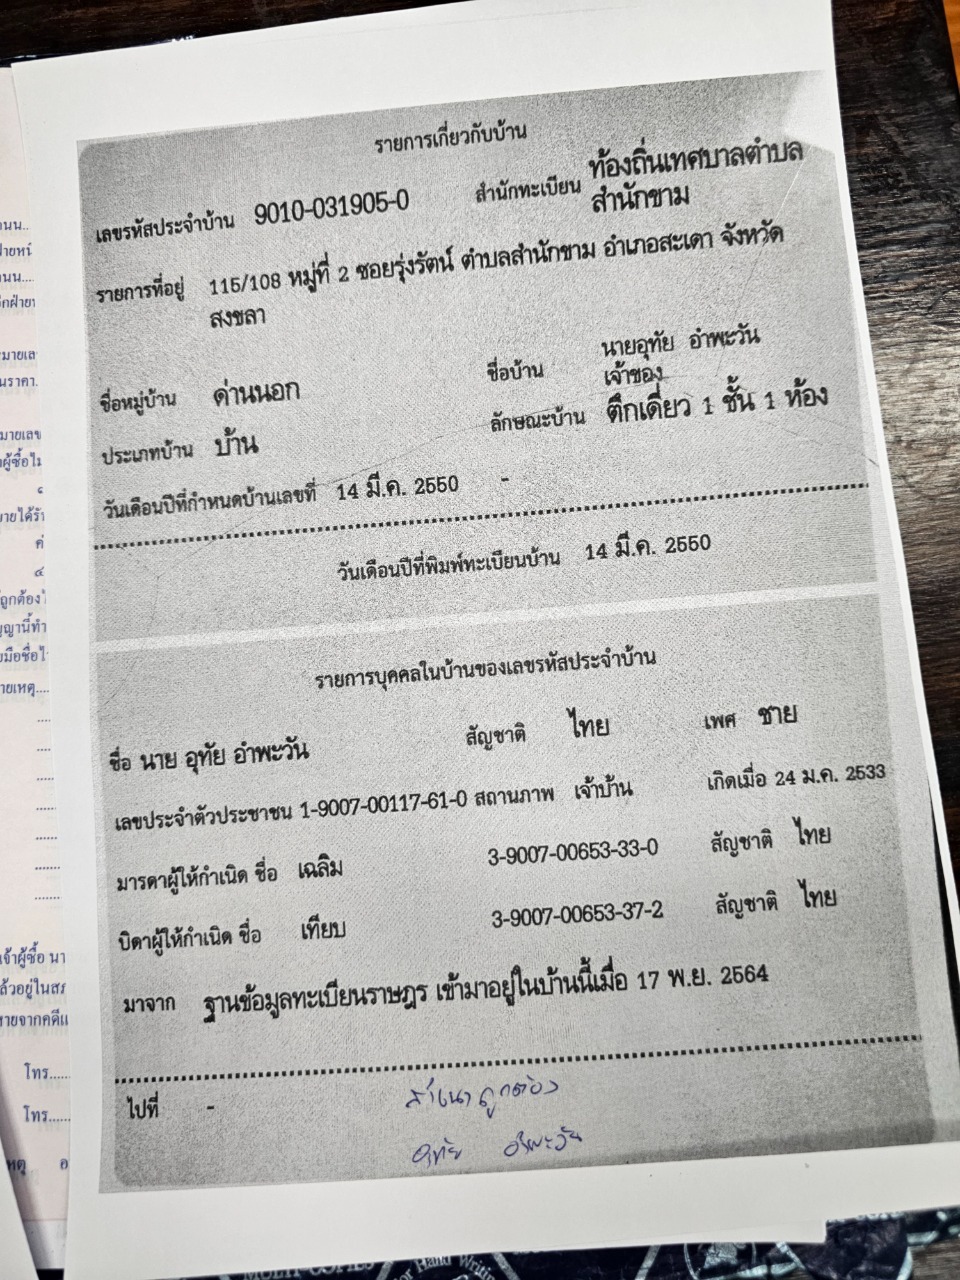 รายการเกี่ยวกับบ้าน
เลขรหัสประจำบ้าน 9010-031905-0 สำนักทะเบียน ท้องถิ่นเทศบาลตำบล
สำนักขาม
รายการที่อยู่ 115/108 หมู่ที่ 2 ซอยรุ่งรัตน์ ตำบลสำนักขาม อำเภอสะเดา จังหวัด
สงขลา
ชื่อหมู่บ้าน ด่านนอก ชื่อบ้าน นายอุทัย อำพะวัน
เจ้าของ
ประเภทบ้าน บ้าน ลักษณะบ้าน ตึกเดี่ยว 1 ชั้น 1 ห้อง
วันเดือนปีที่กำหนดบ้านเลขที่ 14 มี.ค. 2550 -
วันเดือนปีที่พิมพ์ทะเบียนบ้าน 14 มี.ค. 2550
รายการบุคคลในบ้านของเลขรหัสประจำบ้าน
ชื่อ นาย อุทัย อำพะวัน สัญชาติ ไทย เพศ ชาย
เลขประจำตัวประชาชน 1-9007-00117-61-0 สถานภาพ เจ้าบ้าน เกิดเมื่อ 24 ม.ค. 2533
มารดาผู้ให้กำเนิด ชื่อ เฉลิม 3-9007-00653-33-0 สัญชาติ ไทย
บิดาผู้ให้กำเนิด ชื่อ เทียบ 3-9007-00653-37-2 สัญชาติ ไทย
มาจาก ฐานข้อมูลทะเบียนราษฎร เข้ามาอยู่ในบ้านนี้เมื่อ 17 พ.ย. 2564
ไปที่ -
สำเนาถูกต้อง
อุทัย อำพะวัน
โทร......
โทร......